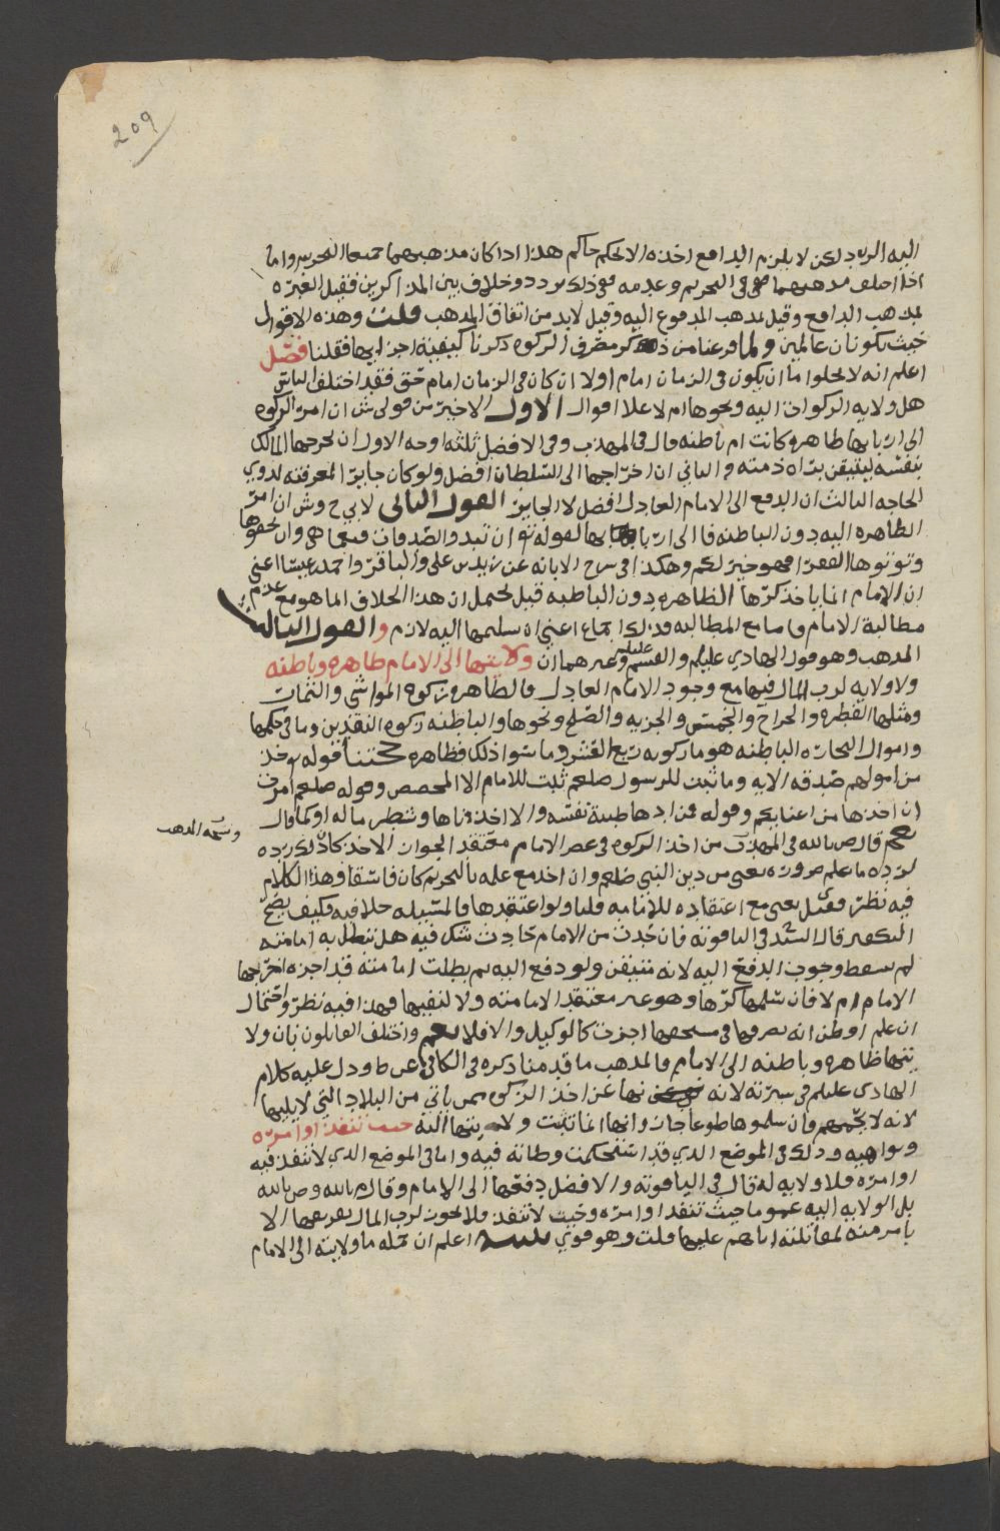 209
اليه الرد لكن لا يلزم الدافع اخذه الا لحكم حاكم هذا اذا كان مذهبهما جميعا التحريم واما
اذا اختلف مذهبهما في التحريم وعدمه ففي ذلك تردد وخلاف بين المذاكرين فقيل العبره
بمذهب الدافع وقيل بمذهب المدفوع اليه وقيل لابد من اتفاق المذهب قلت وهذه الاقوال
حيث يكونان عالمين ولما فرغنا من ذكر مصرف الزكوه ذكرنا كيفية اخراجها فقلنا فصل
اعلم انه لا يخلوا اما ان يكون في الزمان امام اولا ان كان في الزمان امام حق فقد اختلف الناس
هل ولايه الزكوات اليه ونحوها ام لا علا اقوال الاول الاخير من قولي ش ان امر الزكوه
الى اربابها ظاهره كانت ام باطنه قال في المهذب وفي الافضل ثلثه اوجه الاول ان يخرجها المالك
بنفسه ليتيقن براه ذمته والثاني ان اخراجها الى السلطان افضل ولو كان جايرا لمعرفته لذوي
الحاجه الثالث ان الدفع الى الامام العادل افضل لا الجاير القول الثاني لابي ح وش ان امر
الظاهره اليه دون الباطنه فالى اربابها لقوله تع ان تبدوا الصدقات فنعما هي وان تخفوها
وتوتوها الفقرا فهو خير لكم وهكذا في شرح الابانه عن زيد بن علي والباقر واحمد بن عيسا اعني
ان الامام انما ياخذ كرها الظاهره دون الباطنه قيل يحتمل ان هذا الخلاف انما هو مع عدم
مطالبة الامام واما مع المطالبه فذلك اجماع اعني ان سليمها اليه لازم والقول الثالث
المذهب وهو قول الهادي عليلم والقسم عليلم وغيرهما ان ولايتها الى الامام ظاهره وباطنه
ولا ولايه لرب المال فيها مع وجود الامام العادل فالظاهره زكوة المواشي والثمار
ومثلها الفطره والخراج والخمس والجزيه والصلح ونحوها والباطنه زكوه النقدين وما في حكمها
واموال التجاره الباطنه هو ما زكوته ربع العشر وما سوا ذلك فظاهره حجتنا قوله تع خذ
من اموالهم صدقه الايه وما ثبت للرسول صلعم ثبت للامام الا لمخصص وقوله صلعم امرت
ان اخذها من اغنيايكم وقوله فمن ادها طيبة نفسه والا اخذناها وشطر ماله او كما قال
وشحه المذهب
نعم قال ص بالله في المهذب من اخذ الزكوه في عصر الامام معتقد الجواز الاخذ كان ذلك رده
لرده ما علم ضروره يعني من دين النبي صلعم وان اخذ مع علمه بالتحريم كان فاسقا وهذا الكلام
فيه نظر قيل يعني مع اعتقاده للامامه قلنا ولو اعتقدها فالمسيله خلافيه فكيف يصح
التكفير قال السيد في الياقوته فان حدث من الامام حادث شك فيه هل تبطل به امامته
لم يسقط وجوب الدفع اليه لانه متيقن ولو دفع اليه ثم بطلت امامته قد اجزه اخرجها
الامام ام لا فان سلمها كرها وهو غير معتقد لامامته ولا لنفيها فهذا فيه نظر واحتمال
ان علم او ظن انه يصرفها في مستحقها اجزت كالوكيل والا فلا نعم واختلف القايلون بان ولا
يتها ظاهره وباطنه الى الامام فالمذهب ما قدمنا ذكره في الكافي عن ط ودل عليه كلام
الهادي عليلم في سيرته لانه نها عن اخذ الزكوه ممن ياتي من البلاد التي لا يليها
لانه لا يحميهم فان سلموها طوعا جاز وانها انما تثبت ولايتها اليه حيث تنفذ اوامره
ونواهيه وذلك في الموضع الذي قد استحكمت وطاته فيه واما في الموضع الذي لا تنفذ فيه
اوامره فلا ولايه له قال في الياقوته والافضل دفعها الى الامام وقال م بالله وص بالله
بل الولايه اليه عموما حيث تنفذ اوامره وحيث لا تنفذ فلا يجوز لرب المال تفريقها الا
بامر منه لمقاتلته اياهم عليها قلت وهو قوي تنبيه اعلم ان جمله ما ولايته الى الامام